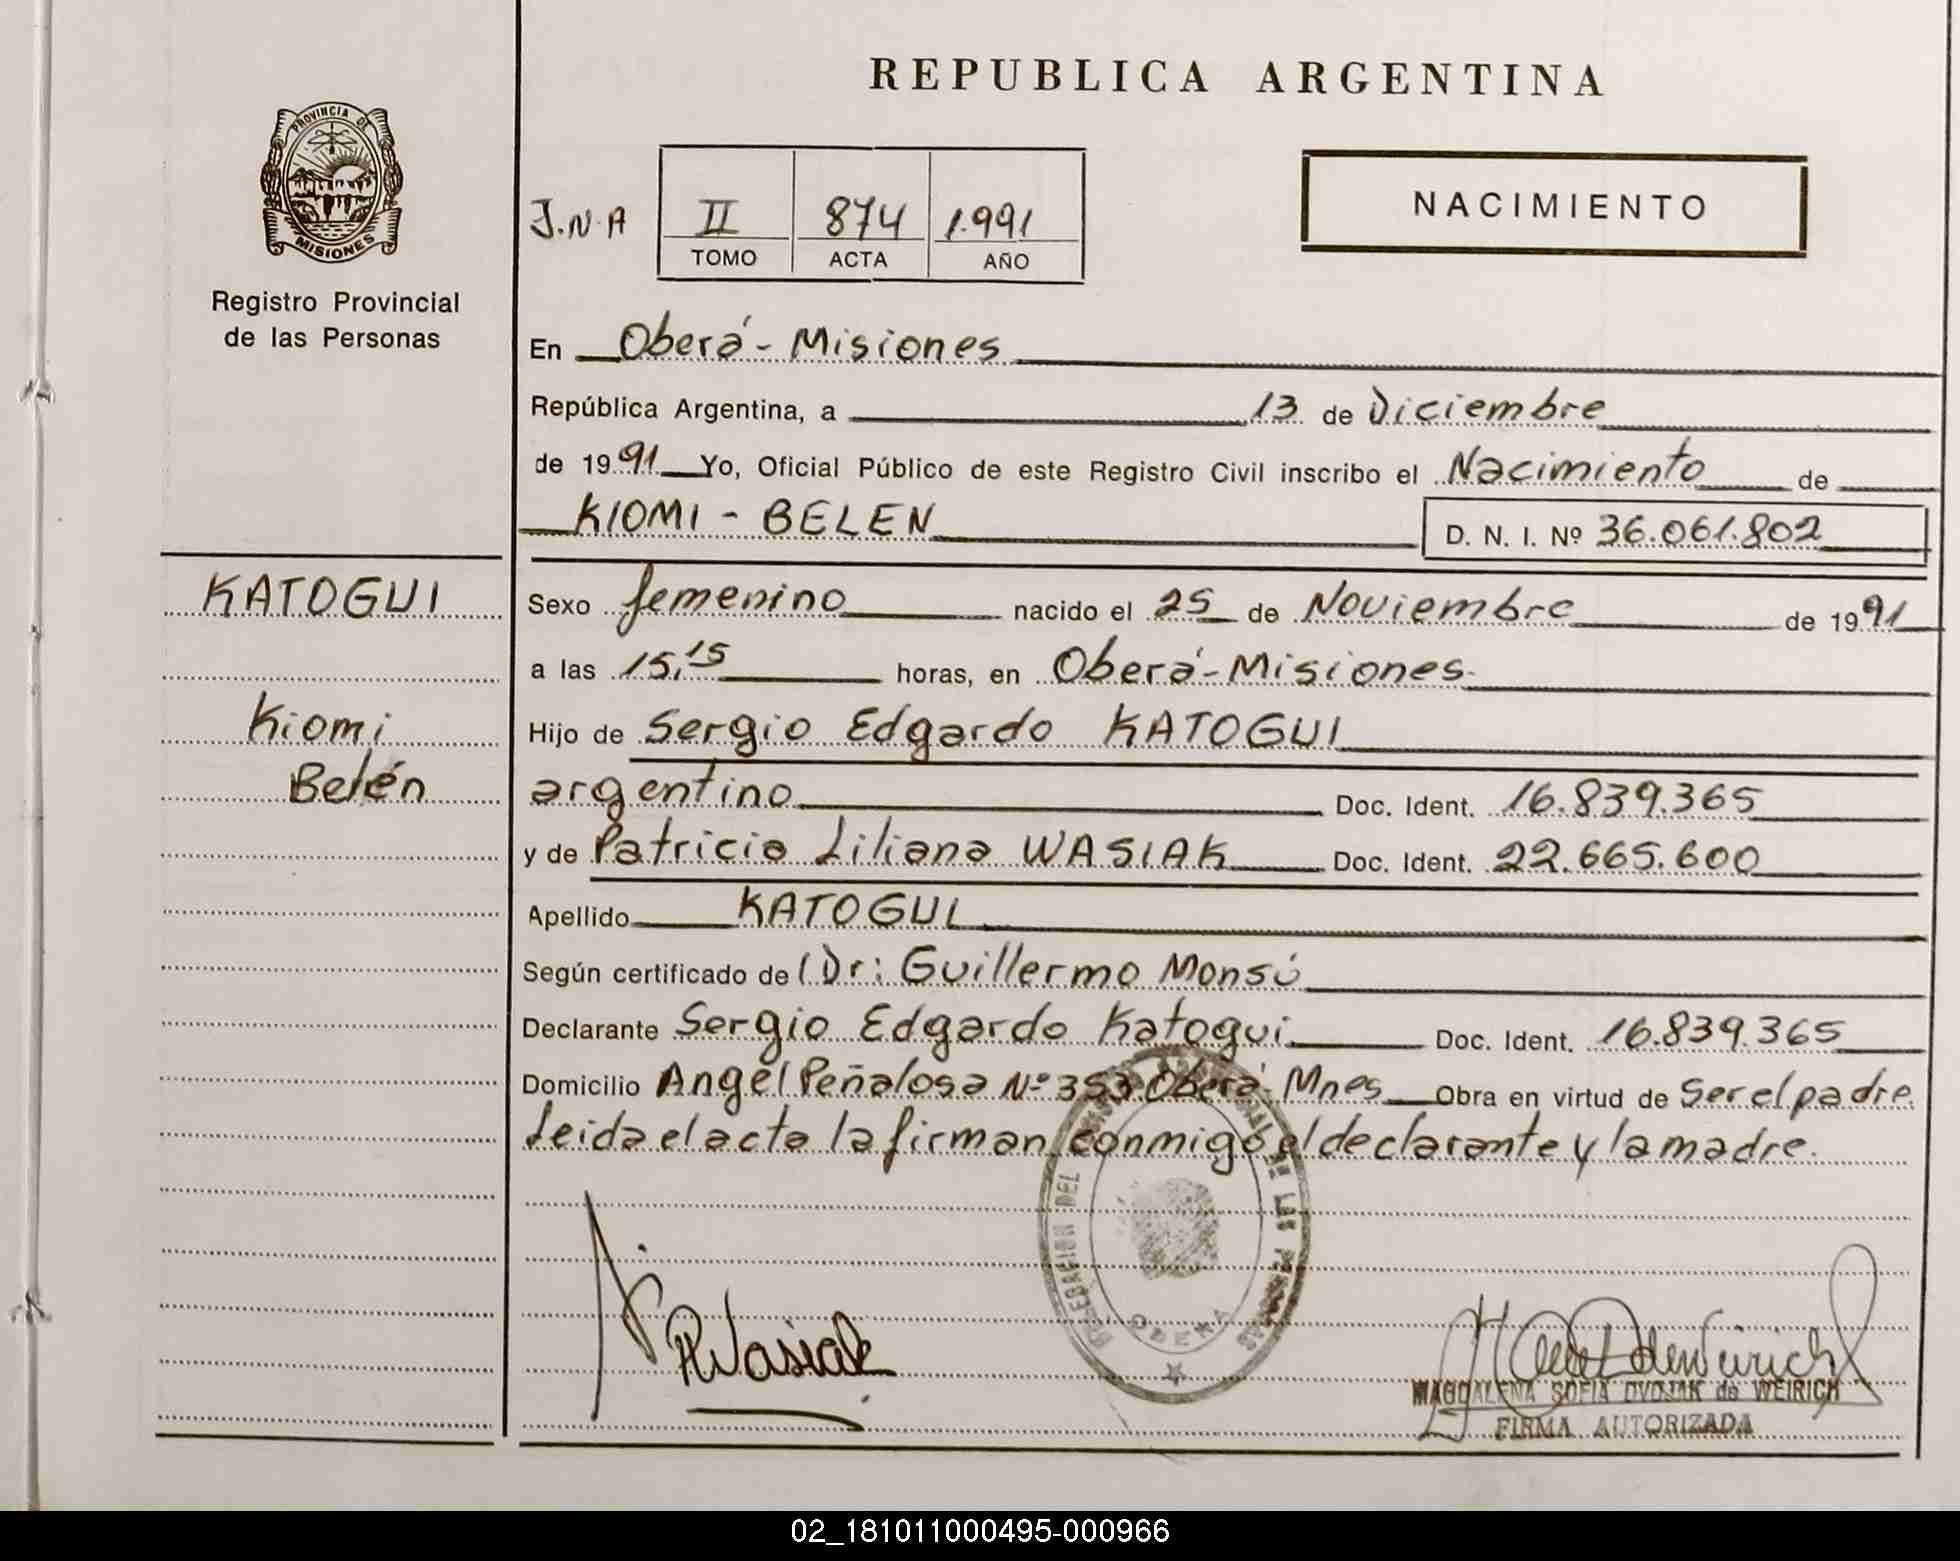 REPUBLICA ARGENTINA
PROVINCIA DE
MISIONES
Registro Provincial
de las Personas
J.N.A II 874 1.991
TOMO ACTA AÑO
NACIMIENTO
En Oberá - Misiones
República Argentina, a 13 de Diciembre
de 1991 Yo, Oficial Público de este Registro Civil inscribo el Nacimiento de
KIOMI - BELEN D. N. I. Nº 36.061.802
KATOGUI
Kiomi
Belén
Sexo femenino nacido el 25 de Noviembre de 1991
a las 15,15 horas, en Oberá - Misiones
Hijo de Sergio Edgardo KATOGUI
argentino Doc. Ident. 16.839.365
y de Patricia Liliana WASIAK Doc. Ident. 22.665.600
Apellido KATOGUI
Según certificado de Dr: Guillermo Monsú
Declarante Sergio Edgardo Katogui Doc. Ident. 16.839.365
Domicilio Angel Peñalosa Nº 353 Oberá - Mnes Obra en virtud de Ser el padre.
Leida el acta la firman conmigo el declarante y la madre.
DELEGACION DEL REGISTRO PROVINCIAL DE LAS PERSONAS
OBERA
PWasiak
MAGDALENA SOFIA DVOJAK de WEIRICH
FIRMA AUTORIZADA
02_181011000495-000966